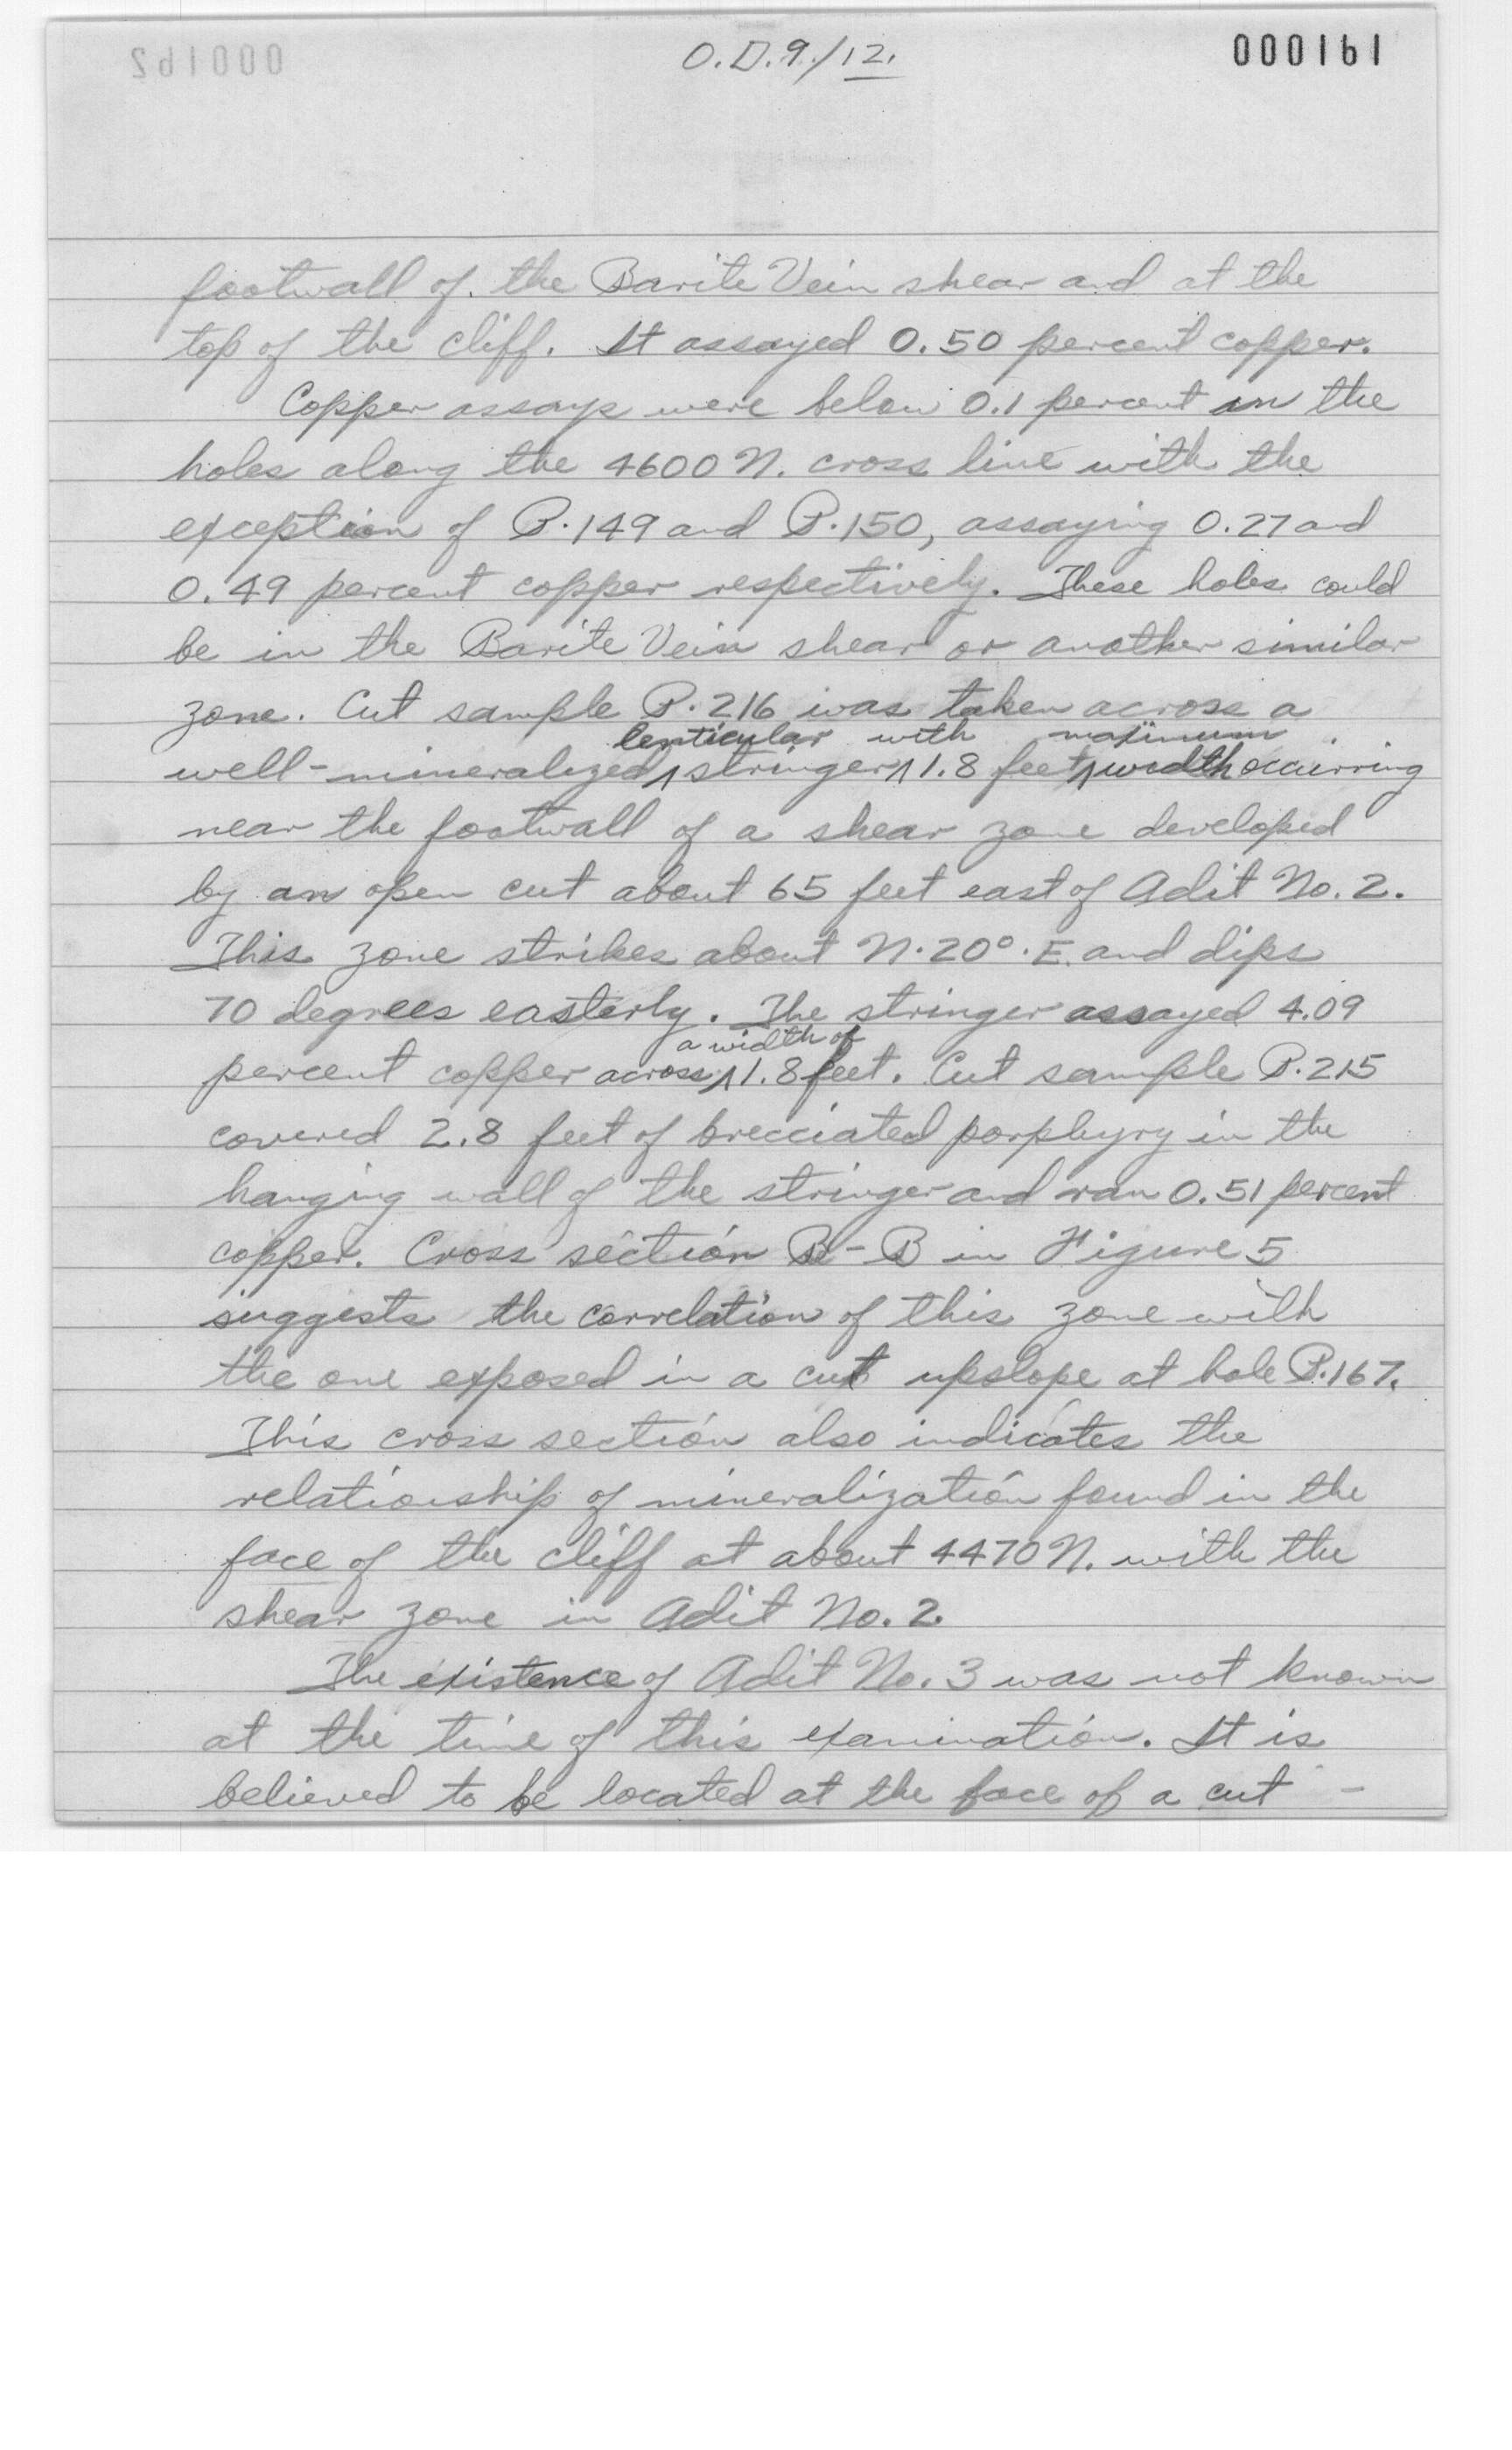 O.D.9./12.
000161
000162
footwall of the Barite Vein shear and at the
top of the cliff. It assayed 0.50 percent copper.
Copper assays were below 0.1 percent in the
holes along the 4600 N. cross line with the
exception of P.149 and P.150, assaying 0.27 and
0.49 percent copper respectively. These holes could
be in the Barite Vein shear or another similar
zone. Cut sample P.216 was taken across a
lenticular with maximum
well-mineralized ʌ stringer ʌ 1.8 feet ʌ width occurring
near the footwall of a shear zone developed
by an open cut about 65 feet east of Adit No. 2.
This zone strikes about N.20°.E. and dips
70 degrees easterly. The stringer assayed 4.09
a width of
percent copper across ʌ 1.8 feet. Cut sample P.215
covered 2.8 feet of brecciated porphyry in the
hanging wall of the stringer and ran 0.51 percent
copper. Cross section B-B in Figure 5
suggests the correlation of this zone with
the one exposed in a cut upslope at hole P.167.
This cross section also indicates the
relationship of mineralization found in the
face of the cliff at about 4470 N. with the
shear zone in Adit No. 2.
The existence of Adit No. 3 was not known
at the time of this examination. It is
believed to be located at the face of a cut -